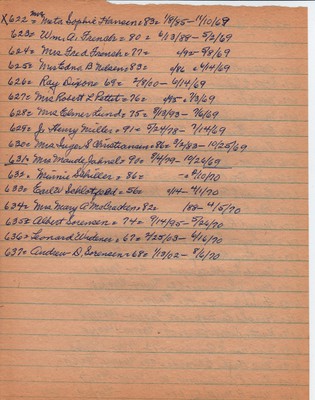 X622= Mrs Meta Sophie Hansen= 83= 9/8/85- 1/10/69
623= Wm. A. French= 80= 6/13/88- 5/2/69
624= Mrs Fred French= 77= 4/92- 9/8/69
625= Mrs Edna B Nielsen= 83= 4/86 = 6/14/69
626= Ray Dixon= 69= 2/18/00- 6/14/69
627= Mrs Robert L Pettit= 76=
628= Mrs Elmer Lund= 75= 8/13/93- 9/6/69
629= J. Henry Miller= 91= 9/24/78- 7/14/69
630= Mrs Inger S Christiansen= 86= 3/2/83- 10/25/69
631= Mrs Maude Jahnel= 70= 10/26/69
632= Minnie Schiller= 86= -=6/10/70
633= Emil 56= 4/14- 4/1/70
634= Mrs Mary A McCracken= 82= 1/88- 4/5/70
635= Albert Sorensen= 74= 7/14/95- 5/26/70
636= Leonard 67= 2/25/03- 6/16/70
637= Andrew D. Sorensen= 68= 1/13/02- 8/6/70